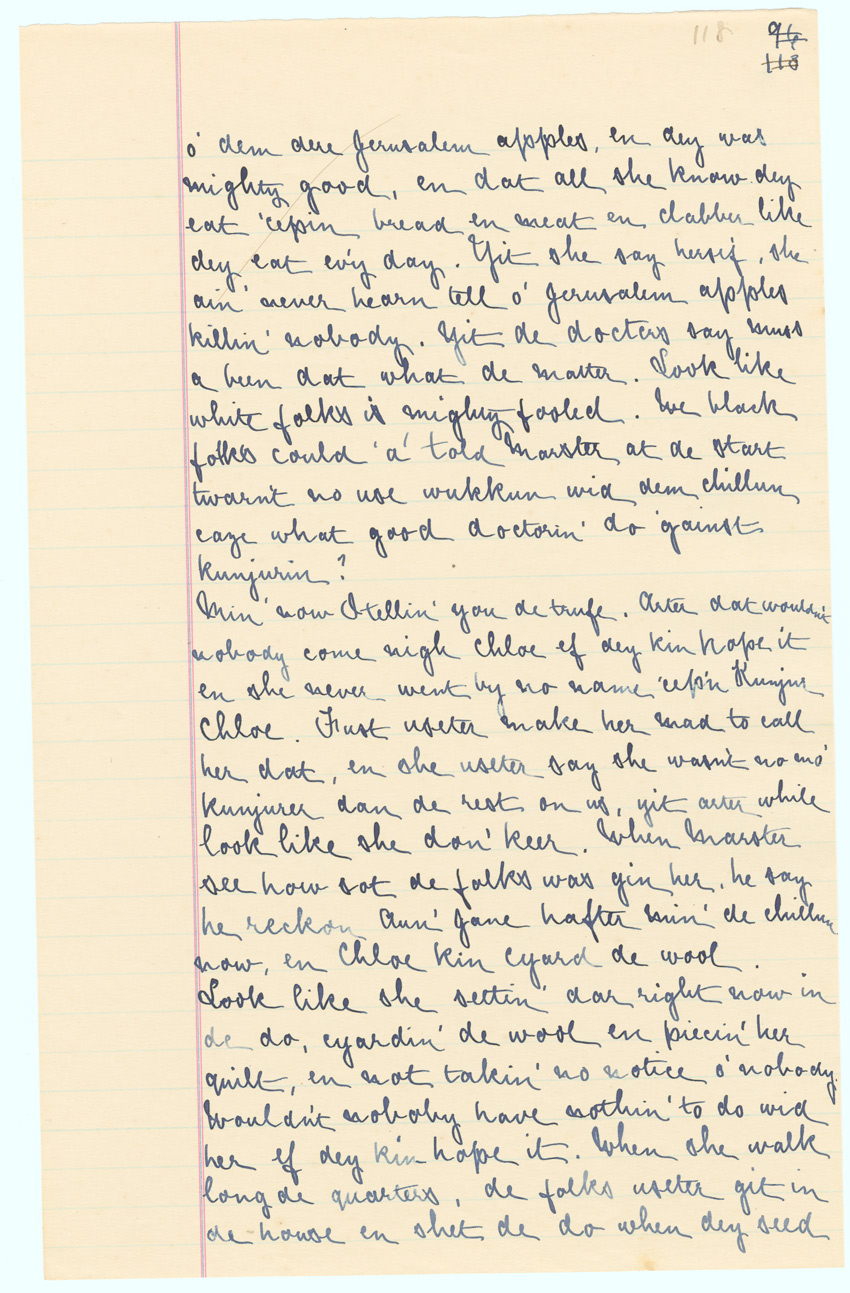 118
96
118
o' dem dere Jerusalem apples, en dey was
mighty good, en dat all she know dey
eat 'cepin bread en meat en clabber like
dey eat ev'y day. Yit she say herse'f, she
ain' never hearn tell o' Jerusalem apples
killin' nobody. Yit de docters say muss
a been dat what de matter. Look like
white folks is mighty fooled. We black
folks could 'a' told Marster at de start
twarn't no use wukkun wid dem chillun
caze what good doctorin' do 'gainst
kunjurin?
Min' now I tellin' you de trufe. Arter dat wouldn't
nobody come nigh Chloe ef dey kin hope it
en she never went by no name 'cep'n Kunjur
Chloe. Fust useter make her mad to call
her dat, en she useter say she wasn't no mo'
kunjurer dan de rest on us, yit arter while
look like she don' keer. When Marster
see how sot de folks was gin her, he say
he reckon Aun' Jane hafter min' de chillun
now, en Chloe kin cyard de wool.
Look like she settin' dar right now in
de do, cyardin' de wool en piecin' her
quilt, en not takin' no notice o' nobody.
Wouldn't noboby have nothin' to do wid
her ef dey kin hope it. When she walk
long de quarters, de folks useter git in
de house en shet de do when dey seed